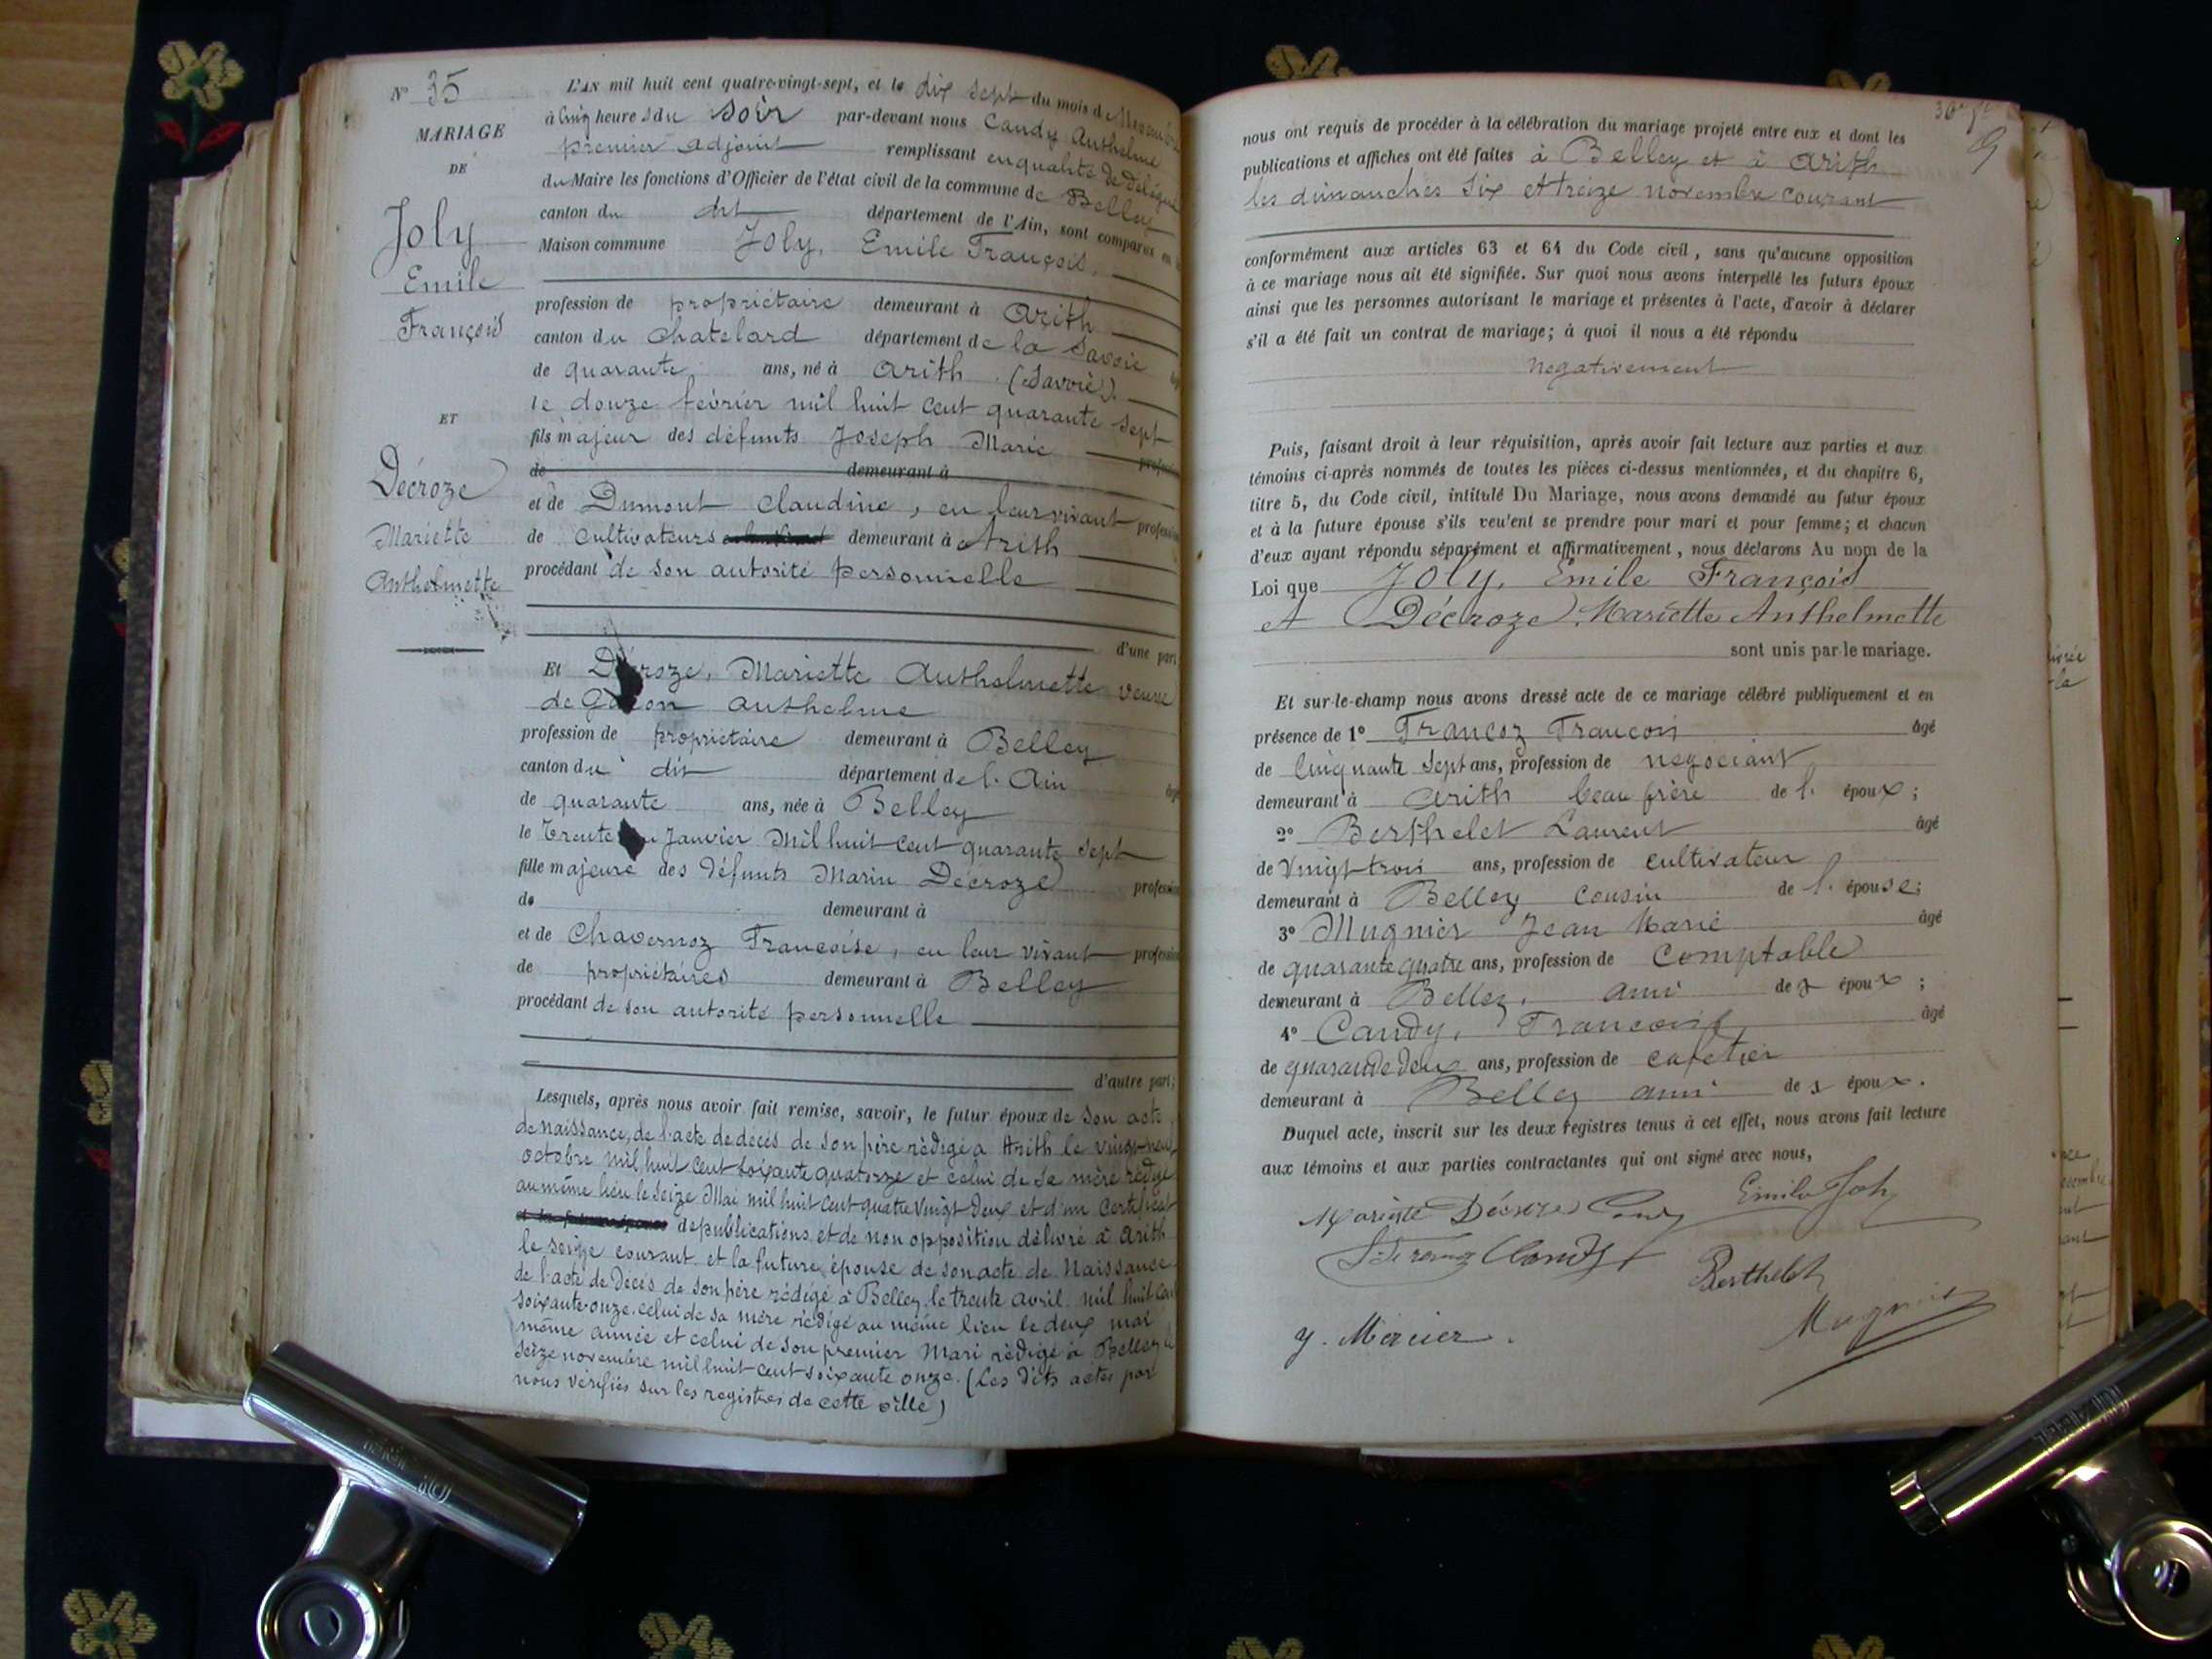 N° 35
MARIAGE
DE
Joly
Emile
François
ET
Décroze
Mariette
Anthelmette
L'AN mil huit cent quatre-vingt-sept, et le dix sept du mois de Novembre
à cinq heures du soir par-devant nous Candy Anthelme
premier adjoint remplissant en qualité de délégué
du Maire les fonctions d'Officier de l'état civil de la commune de Belley
canton du dit département de l'Ain, sont comparus en la
Maison commune Joly, Emile François,
profession de propriétaire demeurant à Arith
canton du Chatelard département de la Savoie
de quarante ans, né à Arith (Savoie)
le douze février mil huit cent quarante sept
fils majeur des défunts Joseph Marie
de demeurant à
et de Dumont Claudine, en leur vivant profession
de cultivateurs demeurant à Arith
procédant de son autorité personnelle
d'une part
Et Décroze, Mariette Anthelmette veuve
de Anthelme
profession de propriétaire demeurant à Belley
canton du dit département de l'Ain
de quarante ans, née à Belley âgé
le trente janvier mil huit cent quarante sept
fille majeure des défunts Marin Décroze profession
de demeurant à
et de Chavernoz Françoise, en leur vivant profession
de propriétaires demeurant à Belley
procédant de son autorité personnelle
d'autre part;
Lesquels, après nous avoir fait remise, savoir, le futur époux de son acte
de naissance, de l'acte de décès de son père rédigé à Arith le vingt-neuf
octobre mil huit cent soixante quatorze et celui de sa mère rédigé
au même lieu le seize Mai mil huit cent quatre vingt deux et d'un certificat
de publications et de non opposition délivré à Arith
le seize courant et la future épouse de son acte de Naissance
de l'acte de décès de son père rédigé à Belley le trente avril mil huit cent
soixante-onze, celui de sa mère rédigé au même lieu le deux mai
même année et celui de son premier Mari rédigé à Belley le
seize novembre mil huit cent soixante onze. (Les dits actes par
nous vérifiés sur les registres de cette ville)
nous ont requis de procéder à la célébration du mariage projeté entre eux et dont les
publications et affiches ont été faites à Belley et à Arith
les dimanches six et treize novembre courant
conformément aux articles 63 et 64 du Code civil, sans qu'aucune opposition
à ce mariage nous ait été signifiée. Sur quoi nous avons interpellé les futurs époux
ainsi que les personnes autorisant le mariage et présentes à l'acte, d'avoir à déclarer
s'il a été fait un contrat de mariage; à quoi il nous a été répondu
négativement
Puis, faisant droit à leur réquisition, après avoir fait lecture aux parties et aux
témoins ci-après nommés de toutes les pièces ci-dessus mentionnées, et du chapitre 6,
titre 5, du Code civil, intitulé Du Mariage, nous avons demandé au futur époux
et à la future épouse s'ils veulent se prendre pour mari et pour femme; et chacun
d'eux ayant répondu séparément et affirmativement, nous déclarons Au nom de la
Loi que Joly, Emile François
et Décroze, Mariette Anthelmette
sont unis par le mariage.
Et sur-le-champ nous avons dressé acte de ce mariage célébré publiquement et en
présence de 1° Francoz François âgé
de cinquante sept ans, profession de négociant
demeurant à Arith beau frère de l' époux;
2° Berthelet Laurent âgé
de vingt trois ans, profession de cultivateur
demeurant à Belley cousin de l' épouse;
3° Mugnier Jean Marie âgé
de quarante quatre ans, profession de Comptable
demeurant à Belley, ami des époux;
4° Candy, François, âgé
de quarante deux ans, profession de cafetier
demeurant à Belley ami des époux.
Duquel acte, inscrit sur les deux registres tenus à cet effet, nous avons fait lecture
aux témoins et aux parties contractantes qui ont signé avec nous,
Mariette Décroze Candy Emile Joly
Berthelet
Mugnier
J. Mercier.